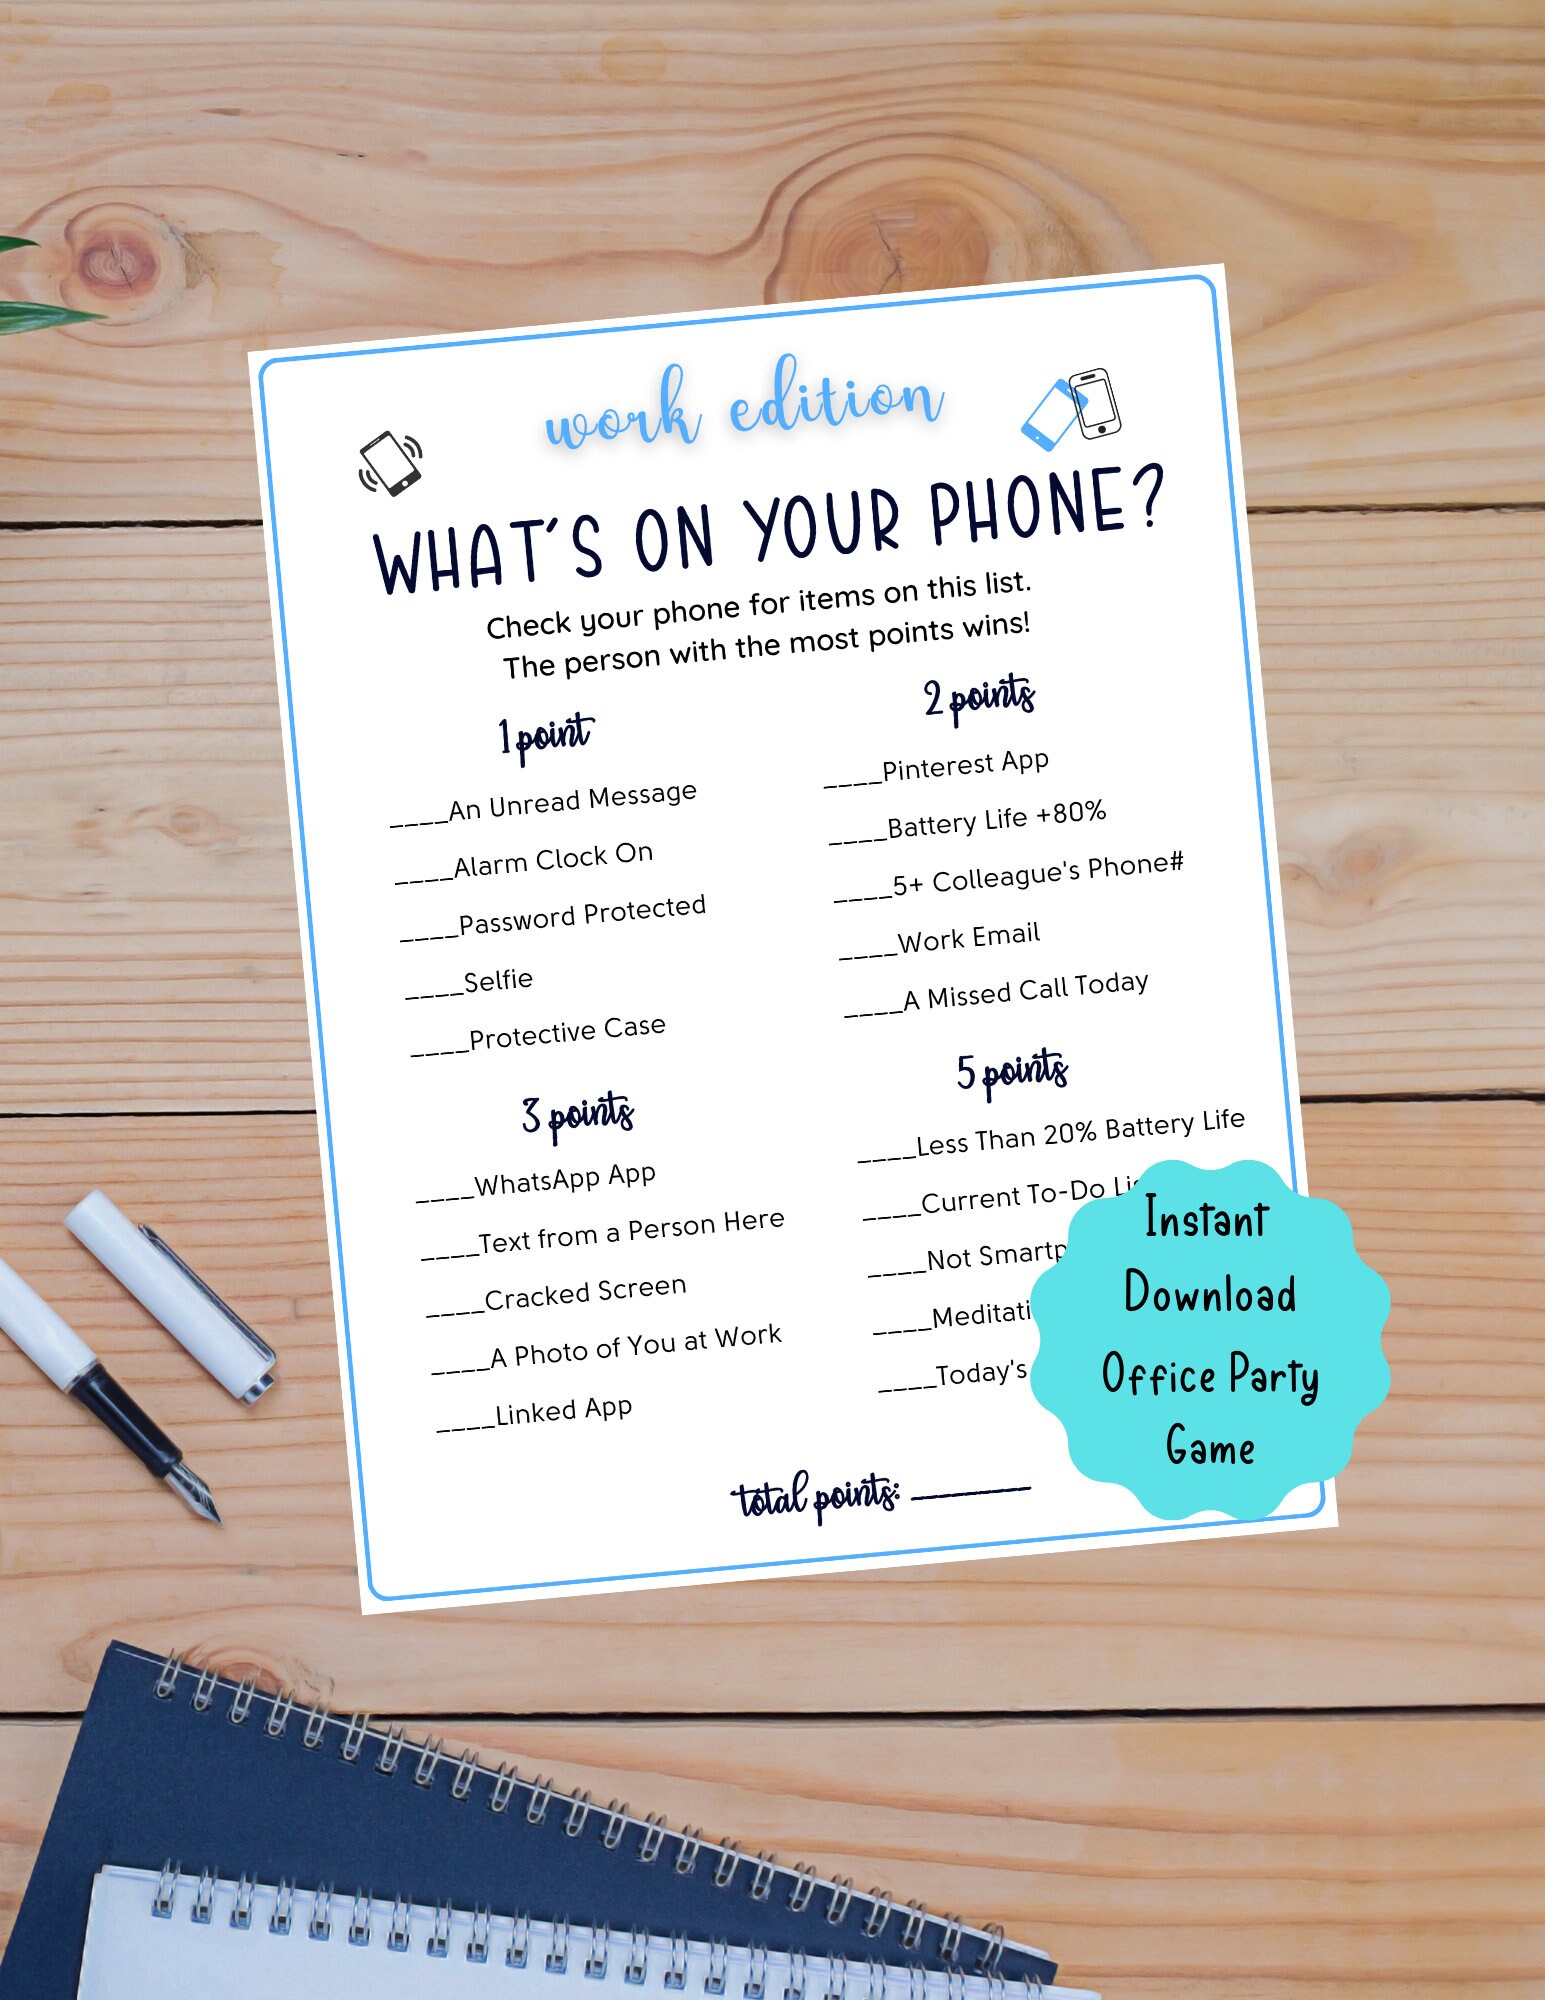 work edition
WHAT'S ON YOUR PHONE?
Check your phone for items on this list.
The person with the most points wins!
1 point
____An Unread Message
____Alarm Clock On
____Password Protected
____Selfie
____Protective Case
2 points
____Pinterest App
____Battery Life +80%
____5+ Colleague's Phone#
____Work Email
____A Missed Call Today
3 points
____WhatsApp App
____Text from a Person Here
____Cracked Screen
____A Photo of You at Work
____Linked App
5 points
____Less Than 20% Battery Life
____Current To-Do
____Not
____
____Today's
total points: ______
Instant
Download
Office Party
Game